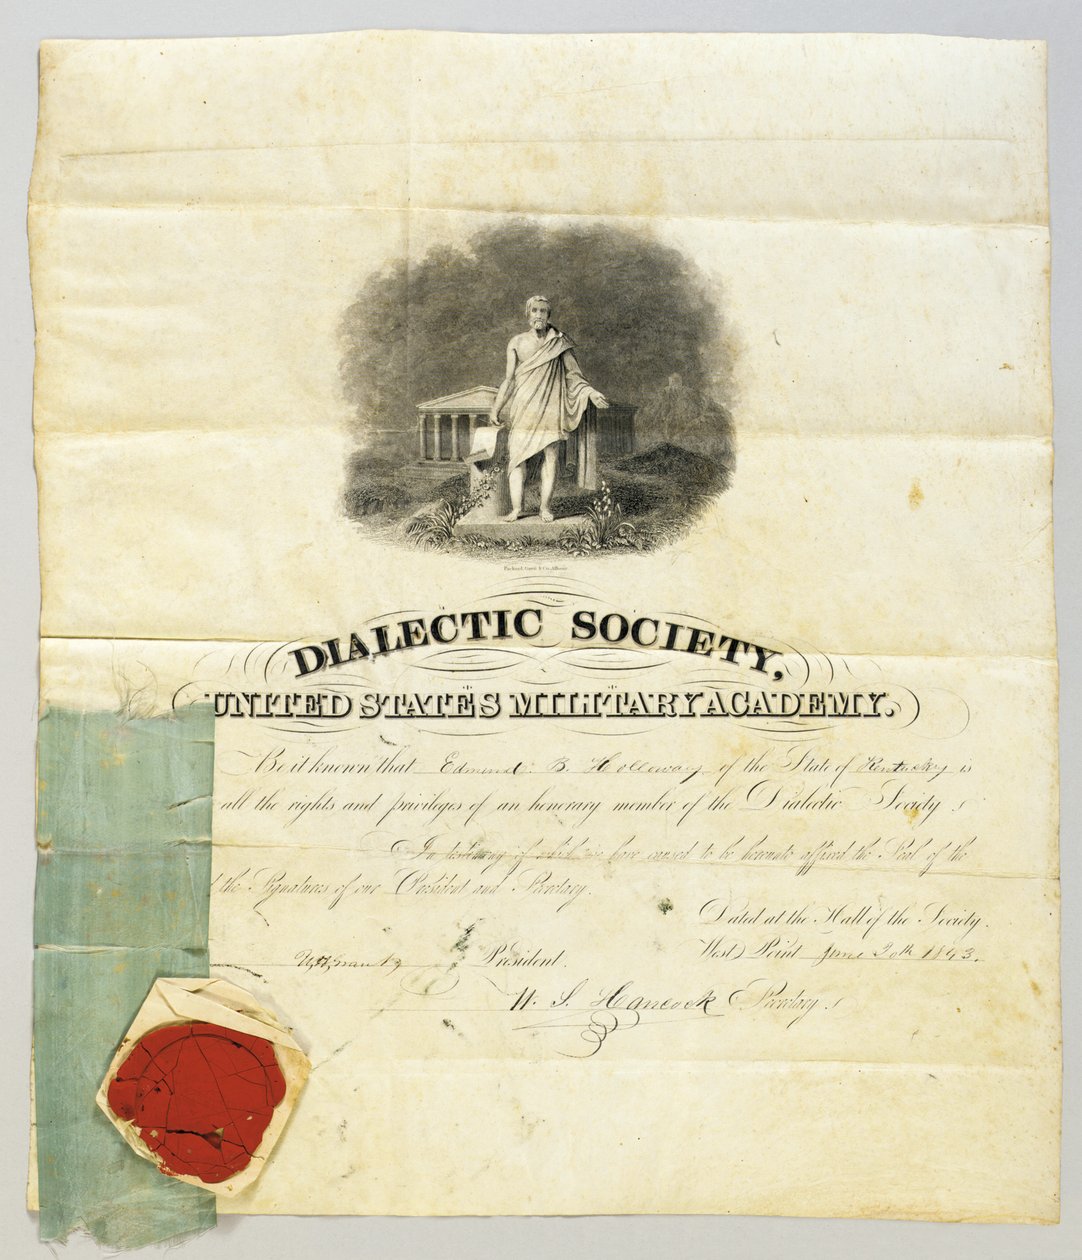 Packard, Gavit & Co. Albany
DIALECTIC SOCIETY,
UNITED STATES MILITARY ACADEMY.
Be it known that Edmund B. Holloway of the State of Kentucky is
all the rights and privileges of an honorary member of the Dialectic Society
In testimony of which we have caused to be hereunto affixed the Seal of the
the Signatures of our President and Secretary.
Dated at the Hall of the Society.
West Point June 20th 1843.
U.H. Grant President.
W. S. Hancock Secretary.